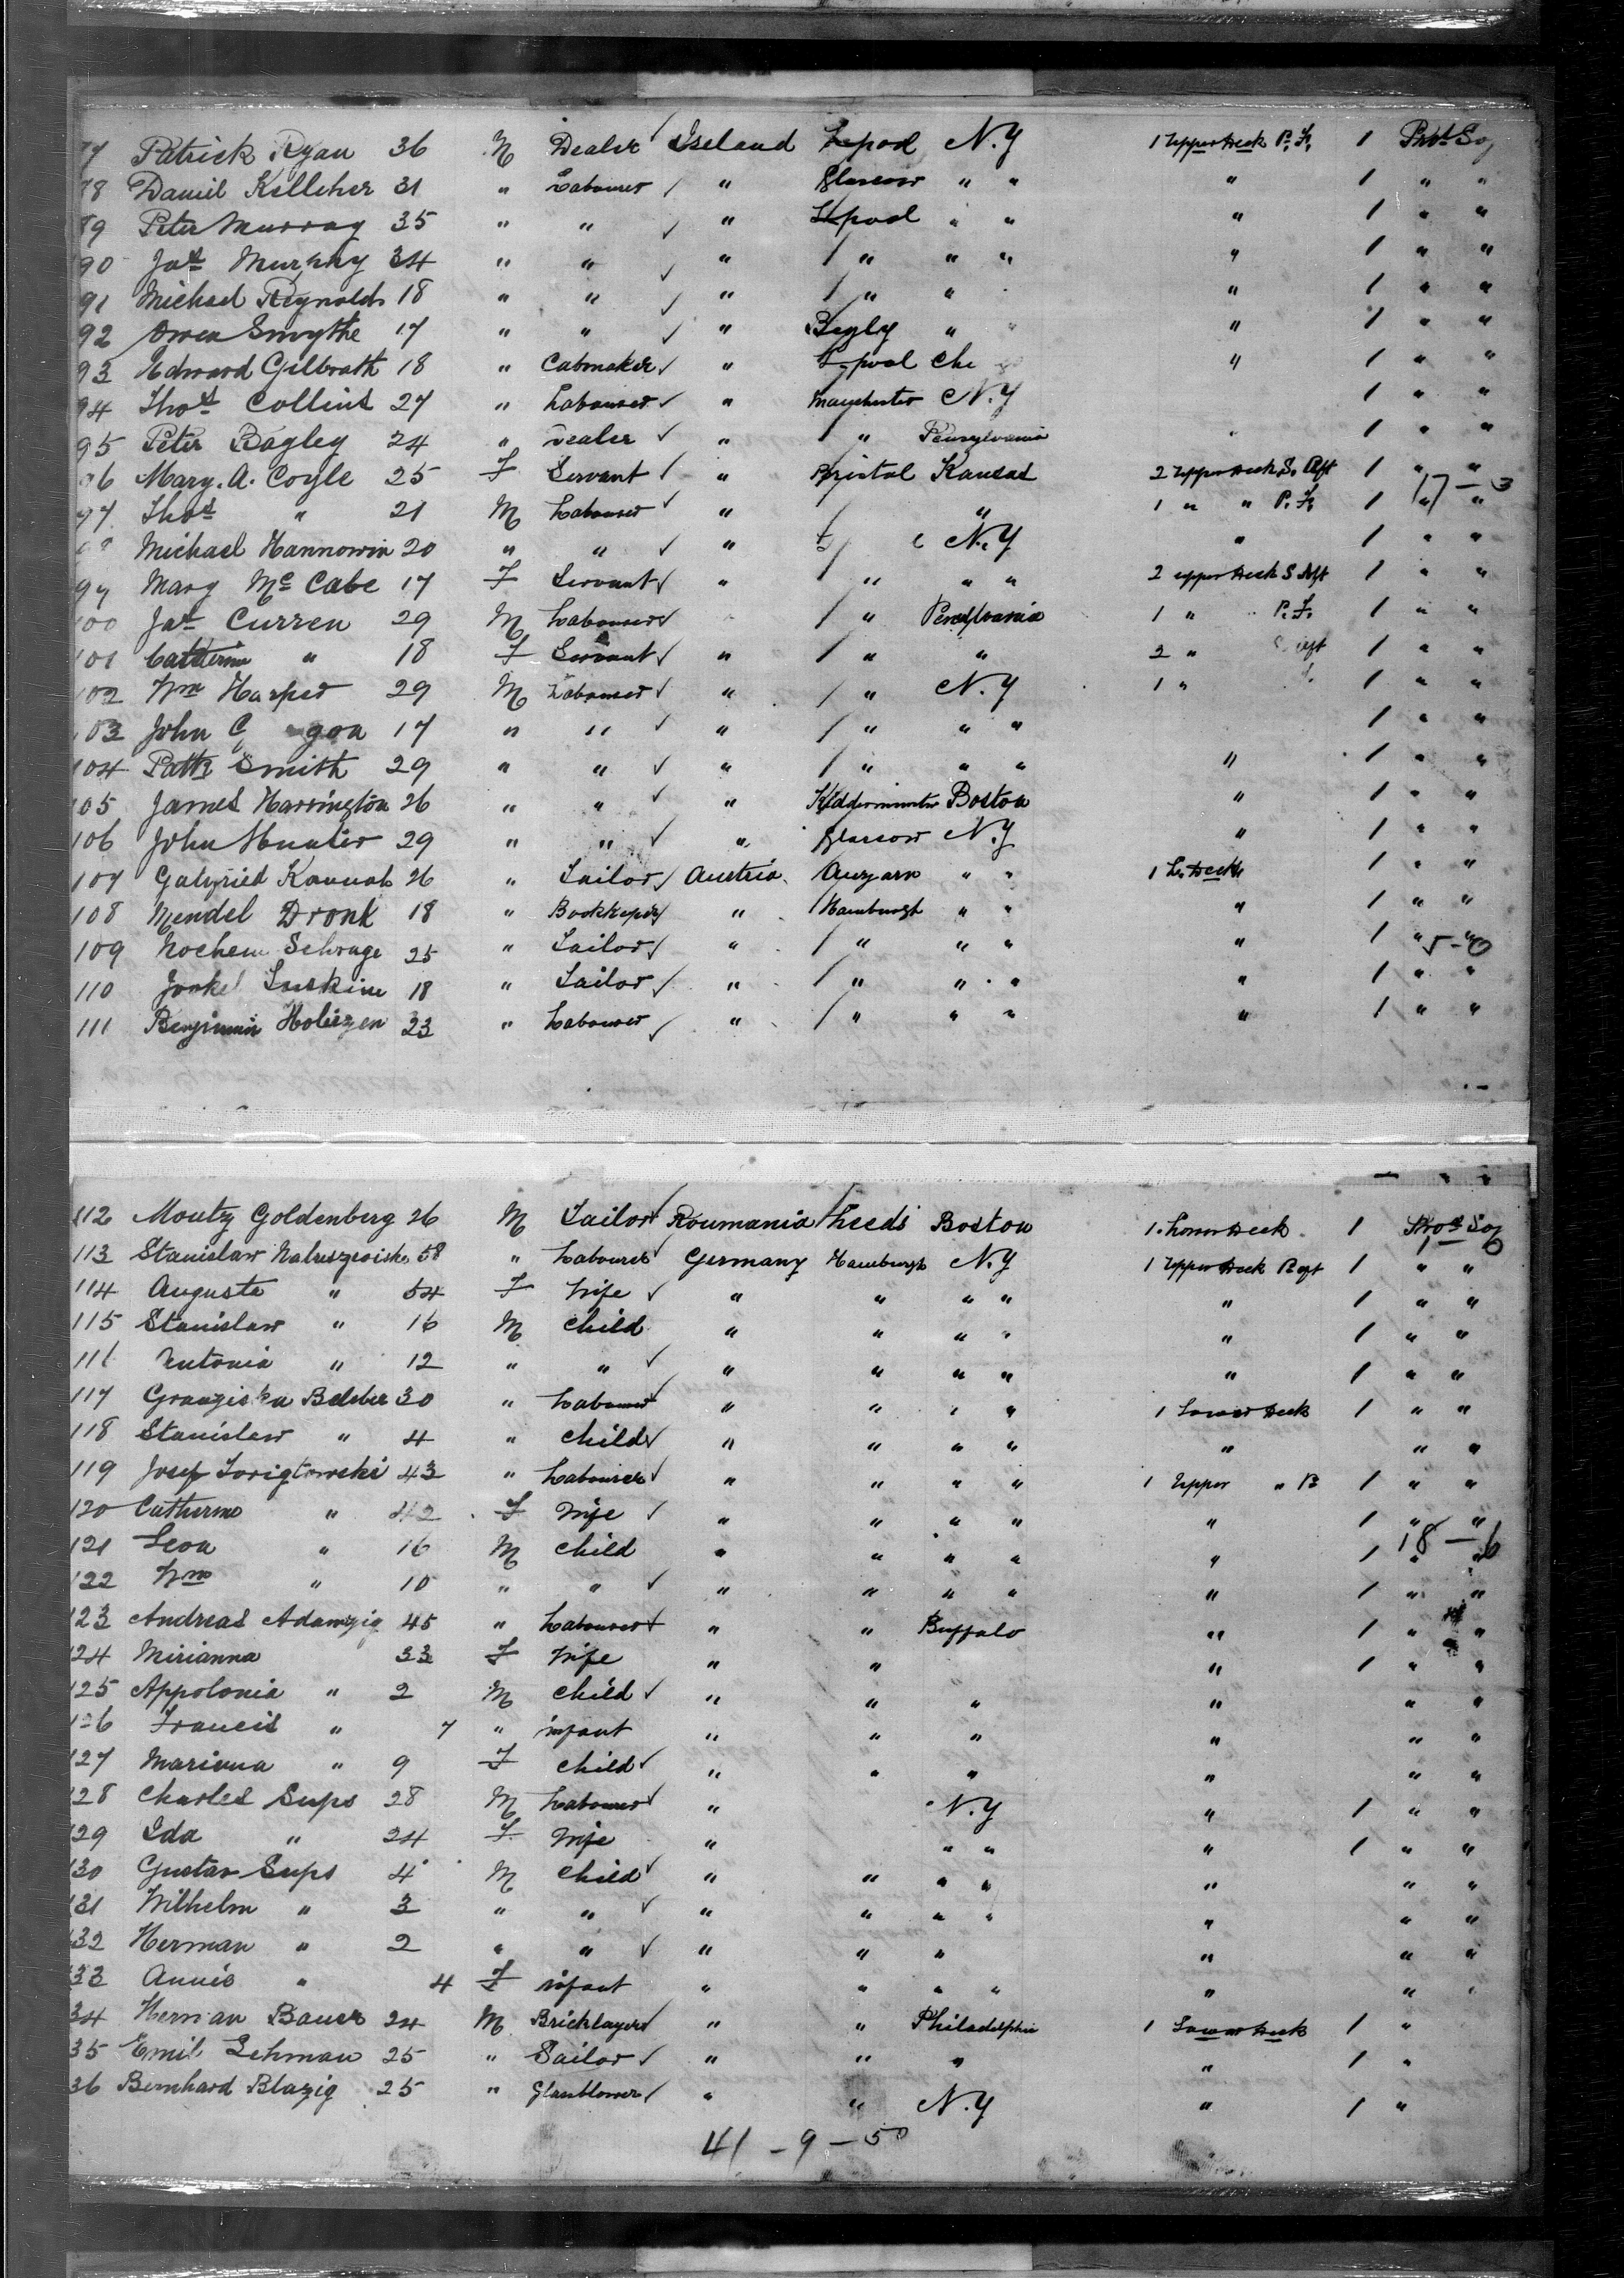 Patrick Ryan 36 M Dealer Ireland Lpool N.Y 1 Upper Deck P. F. 1 Prot Soj
88 Daniel Kelleher 31 " Labourer " Glascow " " " 1 " "
89 Peter Murray 35 " " " Lpool " " " 1 " "
90 Jas Murphy 34 " " " " " " " 1 " "
91 Michael Reynolds 18 " " " " " " 1 " "
92 Owen Smythe 17 " " " " " " 1 " "
93 Edward Gilbrath 18 " Cabmaker " Lpool Chi " 1 " "
94 Thos Collins 27 " Labourer " Manchester N.Y 1 " "
95 Peter Bagley 24 " Dealer " " Pensylvania " 1 " "
96 Mary. A. Coyle 25 F Servant " Bristol Kansas 2 Upper Deck S. Aft 1 " "
17 - 3
97 Thos " 21 M Labourer " " 1 " " P. F. 1 " "
Michael Hannowin 20 " " " N.Y " 1 " "
99 Mary McCabe 17 F Servant " " " " 2 upper Deck S Aft 1 " "
100 Jas Curren 29 M Labourer " Pensylvania 1 " P. F. 1 " "
101 Catherin " 18 F Servant " " " 2 " aft 1 " "
102 Wm Harper 29 M Labourer " " N.Y 1 " 1 " "
103 John 17 " " " " " " 1 " "
104 Patk Smith 29 " " " " " " " 1 " "
105 James Harrington 26 " " " Kidderminster Boston " 1 " "
106 John Hunter 29 " " " Glascow N.Y " 1 " "
107 26 " Tailor Austria " " 1 L. Deck 1 " "
108 Mendel Dronk 18 " Bookkeeper " Hamburgh " " " 1 " "
109 Nochem Schrage 25 " Tailor " " " " " 1 " "
5 - 0
110 Jonkel Luskine 18 " Tailor " " " " " 1 " "
111 Benjimin Holiezen 23 " Labourer " " " " " 1 " "
112 Moritz Goldenberg 26 M Tailor Roumania Leeds Boston 1 Lower Deck 1 Prot Soj
113 Stanislaw 58 " Labourer Germany Hamburgh N.Y 1 Upper Deck B aft 1 " "
114 Auguste " 54 F Wife " " " " " 1 " "
115 Stanislaw " 16 M Child " " " " " 1 " "
116 Antonia " 12 " " " " " " " 1 " "
117 Granziska Beleber 30 " Labourer " " " " 1 Lower Deck 1 " "
118 Stanislaw " 4 " Child " " " " " " "
119 Josef 43 " Labourer " " " " 1 Upper " B 1 " "
120 Catherine " 42 F Wife " " " " " 1 " "
18 - 6
121 Leon " 16 M Child " " " " " 1 " "
122 Wm " 10 " " " " " " " 1 " "
123 Andreas Adamzig 45 " Labourer " " Buffalo " 1 " "
124 Mirianna 33 F Wife " " " 1 " "
125 Appolonia " 2 M Child " " " " " "
126 Francis " 7 " infant " " " " " "
127 Marianna " 9 F Child " " " " " "
128 Charles Sups 28 M Labourer " N.Y " 1 " "
129 Ida " 24 F Wife " " " " 1 " "
130 Gustav Sups 4 M Child " " " " " " "
131 Wilhelm " 3 " " " " " " " " "
132 Herman " 2 " " " " " " " "
133 Annie " 4 F infant " " " " " "
134 Herman Bauer 24 M Bricklayer " " Philadelphia 1 Lower Deck 1 "
135 Emil Lehman 25 " Sailor " " " " 1 "
136 Bernhard Blazig 25 " Glassblower " " N.Y " 1 "
41 - 9 - 50